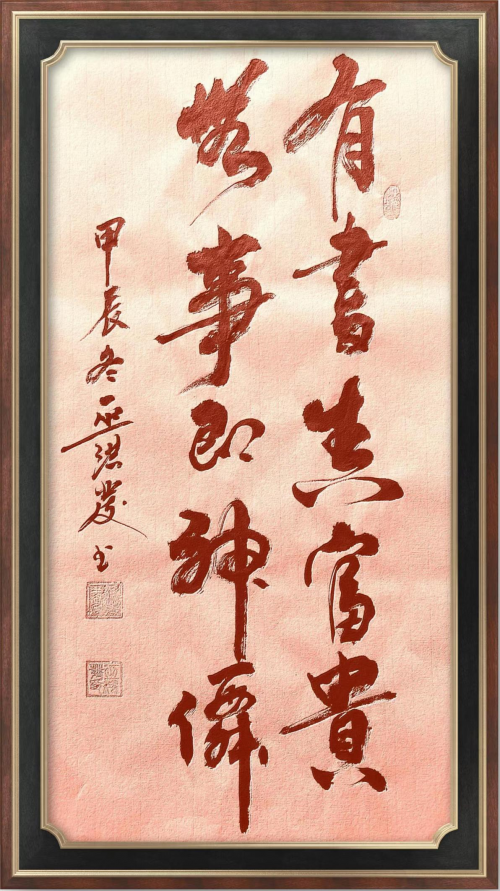 有書真富貴
無事即神僊
甲辰冬书